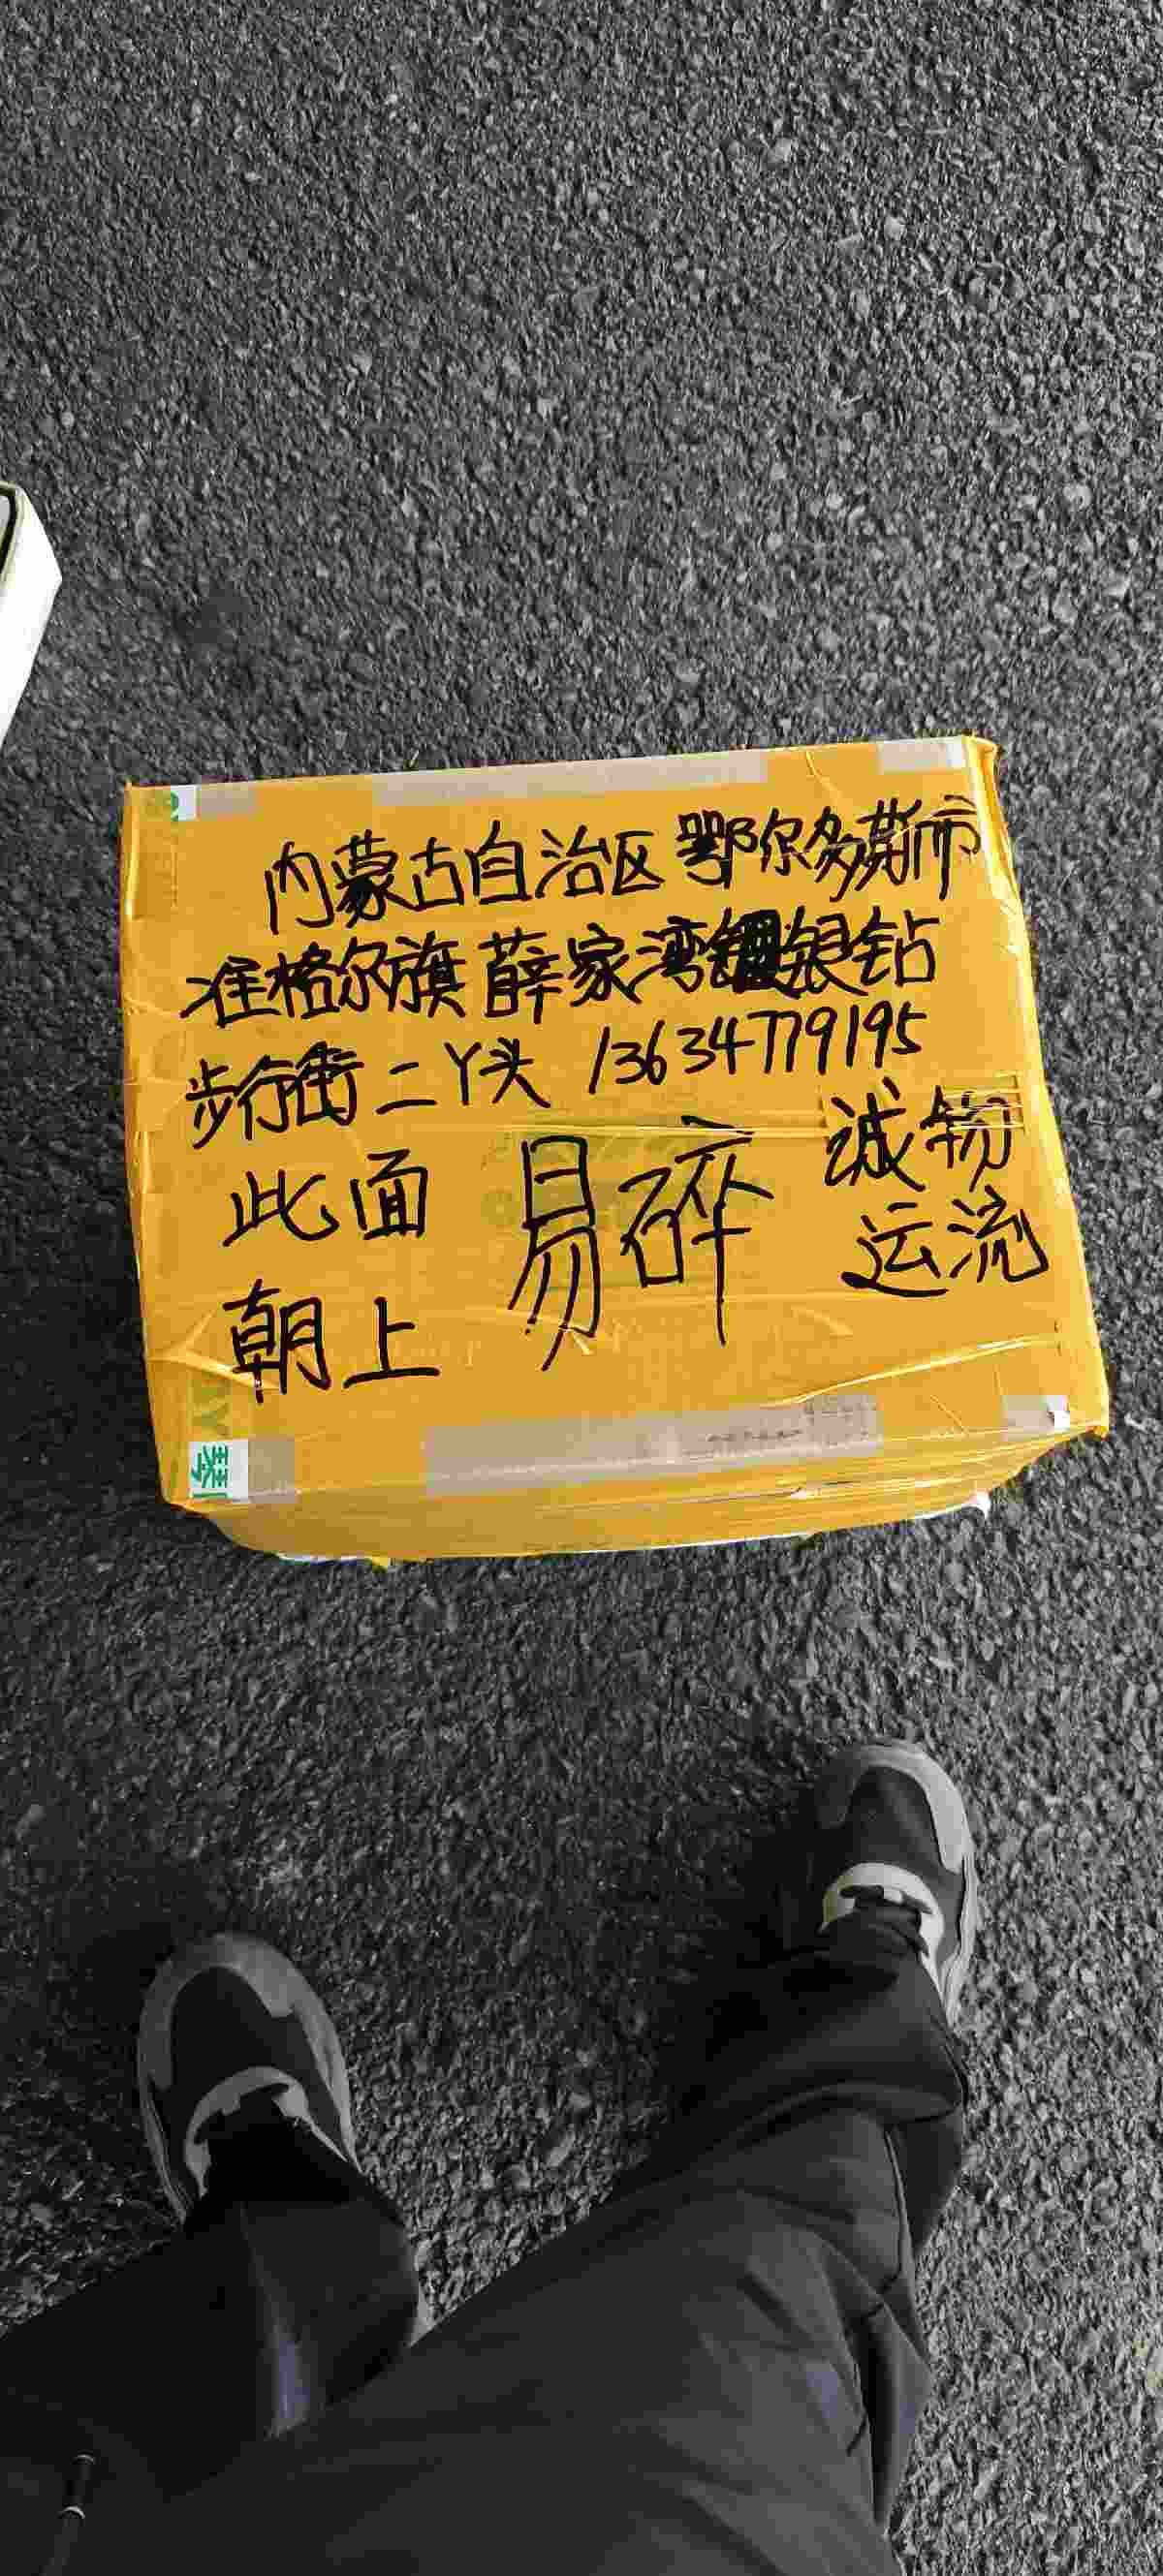 内蒙古自治区鄂尔多斯市
准格尔旗薛家湾银钻
步行街二丫头 13634779195
此面
朝上
易碎
诚物
运流